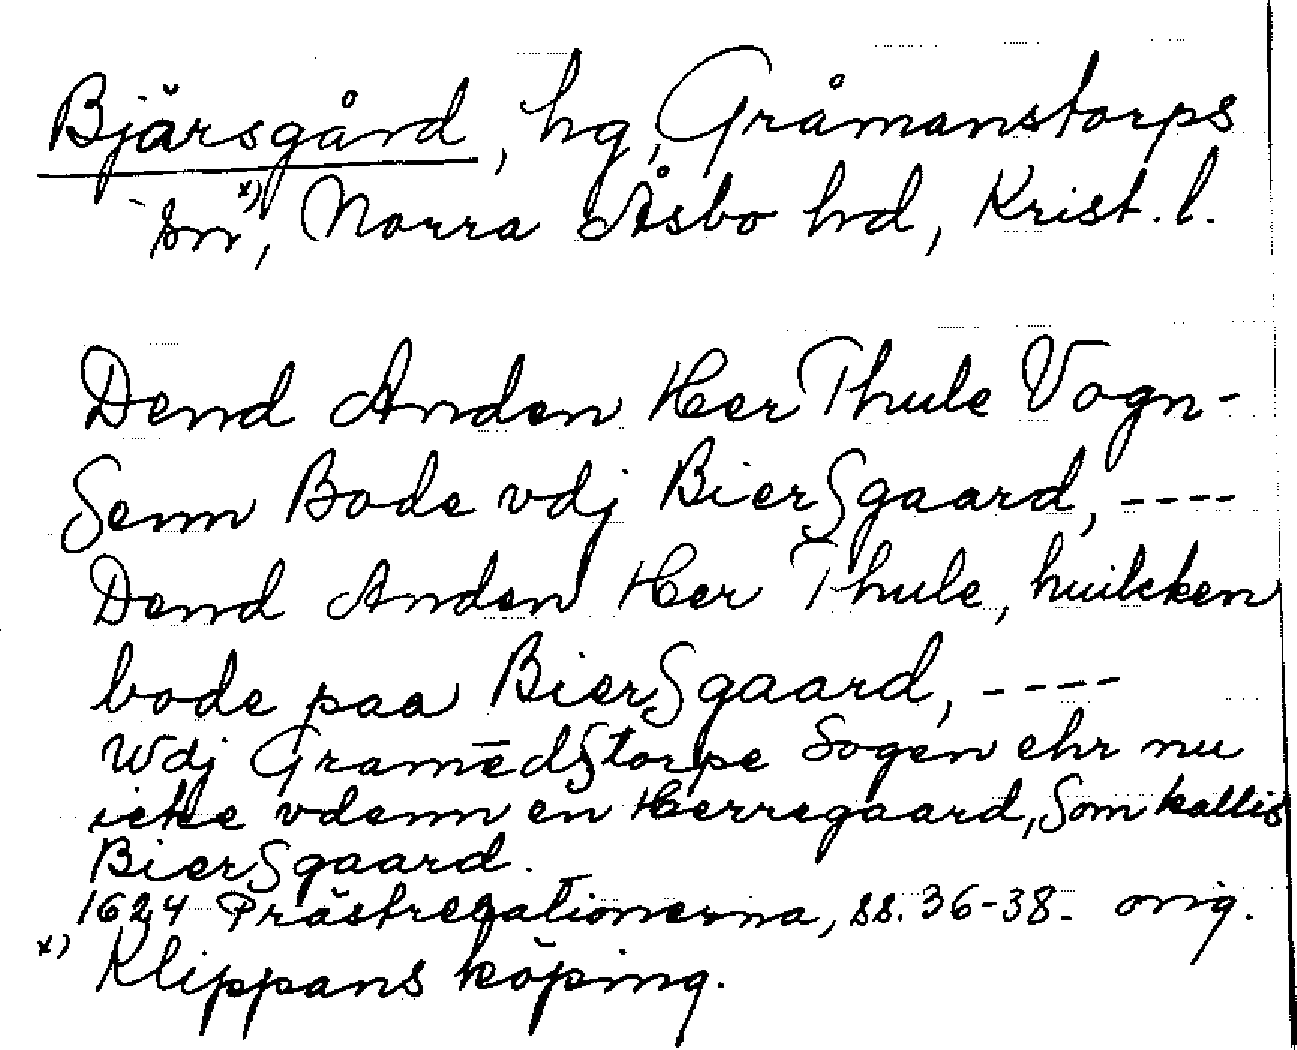 Bjärsgård, hg, Gråmanstorps
sn x), Norra Åsbo hd, Krist. l.
Dend Anden Her Thule Vogn-
Senn Bode vdj BierSgaard, ----
Dend Anden Her Thule, huilcken
bode paa BierSgaard, ----
Wdj GramēdStorpe Sogen ehr nu
icke vdenn en Herregaard, Som kallis
BierSgaard.
1624 Prästrelationerna, ss. 36-38. orig.
x) Klippans köping.